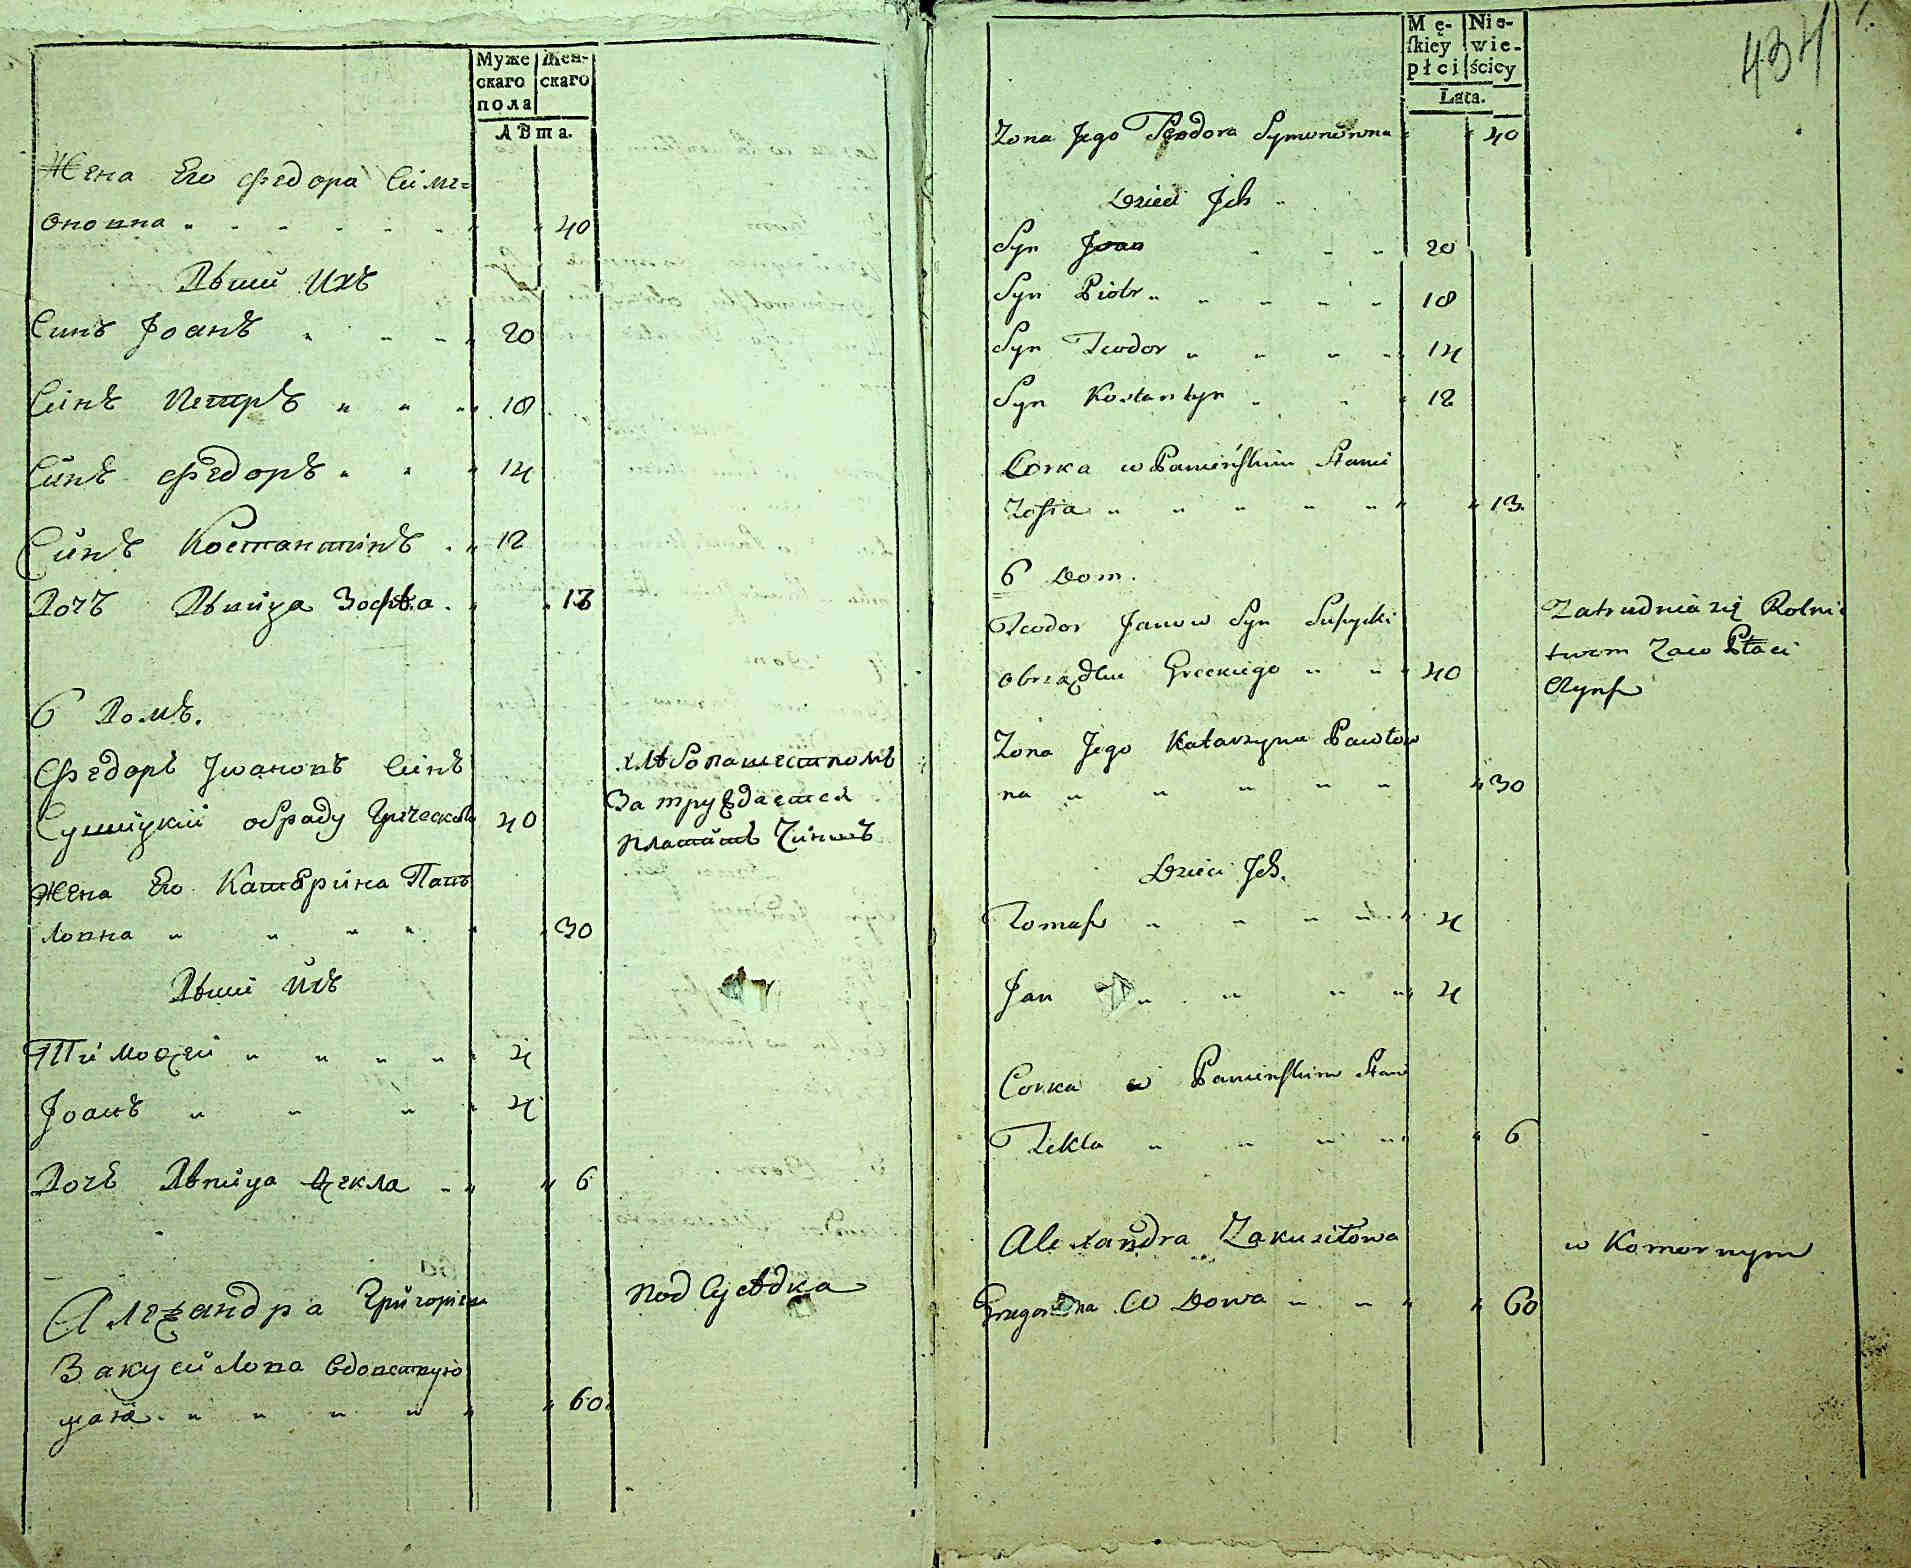 Муже
скаго
пола
Жен-
скаго
лѣта.
Жена Его Федора Симе=
оновна 40
Дѣти Ихъ
Синъ Іоанъ 20
Синъ Петръ 18
Синъ Федоръ 14
Синъ Костантинъ 12
Дочъ Дѣвица Зофѣа 13
6 Домъ.
Федоръ Ивановъ Синъ
обраду Греческо 40
хлѣбопашествомъ
Затруждается
платитъ Чиншъ
Жена Его Катѣрина Пав
ловна 30
Дѣти Ихъ
Тимофей 4
Іоанъ 4
Дочъ Дѣвица Ѳекла 6
Алеѯандра Григориева
Закусилова вдовствую
щая 60
под Сусѣдка
434
Mę-
ſkiey
płci
Nie-
wie-
ściey
Lata.
Zona Jego Teodora Symonowna 40
Dzieci Jch
Syn Joan 20
Syn Piotr 18
Syn Teodor 14
Syn Kostantyn 12
Corka w Panieńſkim Stani
Zofia 13
6 Dom.
Teodor Janow Syn
obrządku Greckiego 40
Zatrudnia się Rolni
twem Zaco Płaci
Czynſz
Zona Jego Katarzyna Pawłow
na 30
Dzieci Jch.
Tomaſz 4
Jan 4
Corka w Panienſkim Stani
Tekla 6
Alexandra Zakusiłowa
w Komornym
Wdowa 60